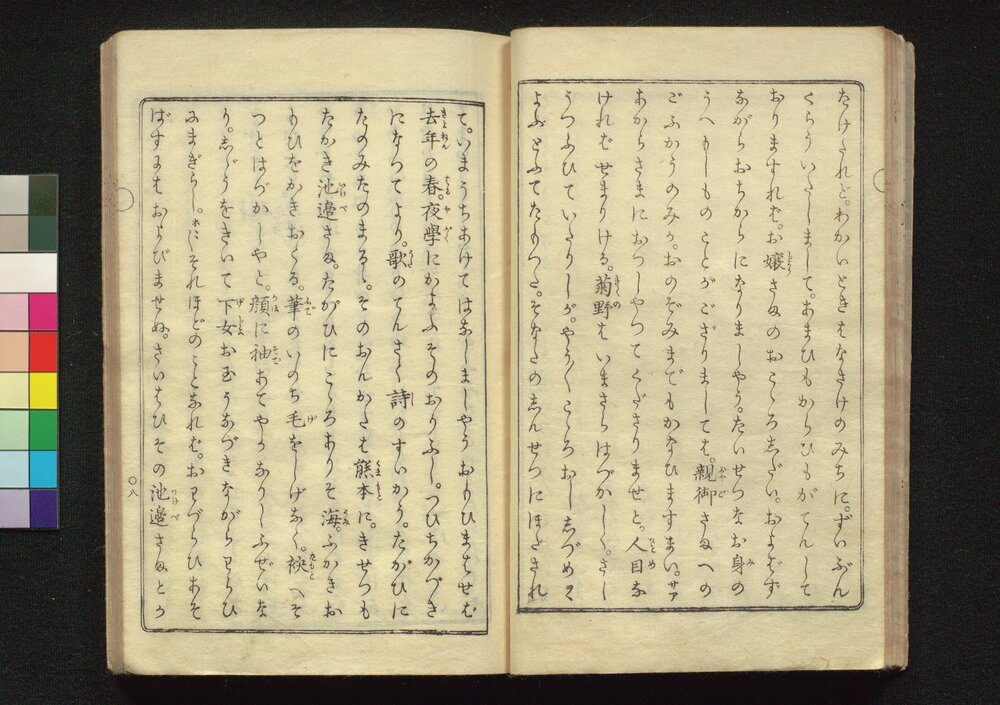 たけたれど。わかいときはなさけのみちに。ずいぶん
くらういたしまして。あまひもからひもがてんして
おりますれば。お嬢さまのおこゝろしだい。およばず
ながらおちからになりましやう。たいせつなお身の
うへもしものことがござりましては。親御さまへの
ごふかうのみか。おのぞみまでもかなひますまい。サア
あからさまにおつしやつてくださりませと。人目な
ければせまりける。菊野はいまさらはづかしく。さし
うつふひていたりしが。やう〳〵こゝろおししづめヱ
よふとふてたもつた。そなたのしんせつにほだされ
て。いまうちあけてはなしましやう おもひまはせば
去年の春。夜學にかよふそのおりふし。つひちかづき
になつてより。歌のてんさく詩のすいかう。たがひに
たのみたのまるゝ。そのおんかたは熊本に。きせつも
たかき池邉さま。たがひにこゝろありそ海。ふかきお
もひをかきおくる。筆のいのち毛をしげなく。袂へそ
つとはづかしやと。顔に袖あてやうなりしふぜいな
り。しゞうをきいて下女お玉うなづきながらわらひ
にまぎらし。ホヽヽそれほどのことなれば。おわづらひあそ
ばすにはおよびませぬ。さいはひその池邉さまとか
〇八